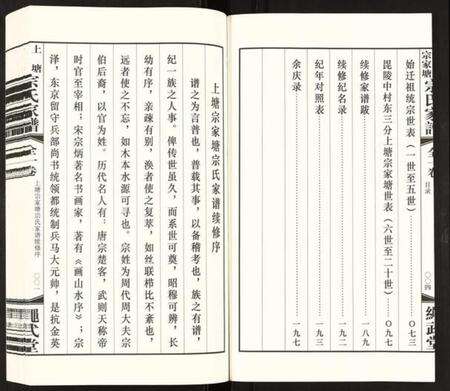 宗家塘宗氏家谱
全一卷
目录
〇〇四
绳武堂
始迁祖统宗世表（一世至五世）
〇七三
毘陵河中村东三分上塘宗家塘世表（六世至二十世）
〇九七
续修家谱跋
一八九
续修纪名录
一九二
纪年对照表
一九三
余庆录
一九七
上塘宗家塘宗氏家谱续修序
谱之为言普也，普载其事，以备稽考也，族之有谱，
纪一族之人事。俾传世虽久，而系世可奠，昭穆可辨，长
幼有序，亲疎有别，涣者使之复萃，如丝联栉比不紊也，
远者使之不忘，如木本水源可寻也。宗姓为周代周大夫宗
伯后裔，以官为姓。历代名人有：唐宗楚客，武则天称帝
时官至宰相；宋宗炳著名书画家，著有《画山水序》；宗
泽，东京留守兵部尚书统领都统制兵马大元帅，是抗金英
上塘
宗氏家谱
全一卷
上塘宗家塘宗氏家谱续修序
〇〇一
绳武堂